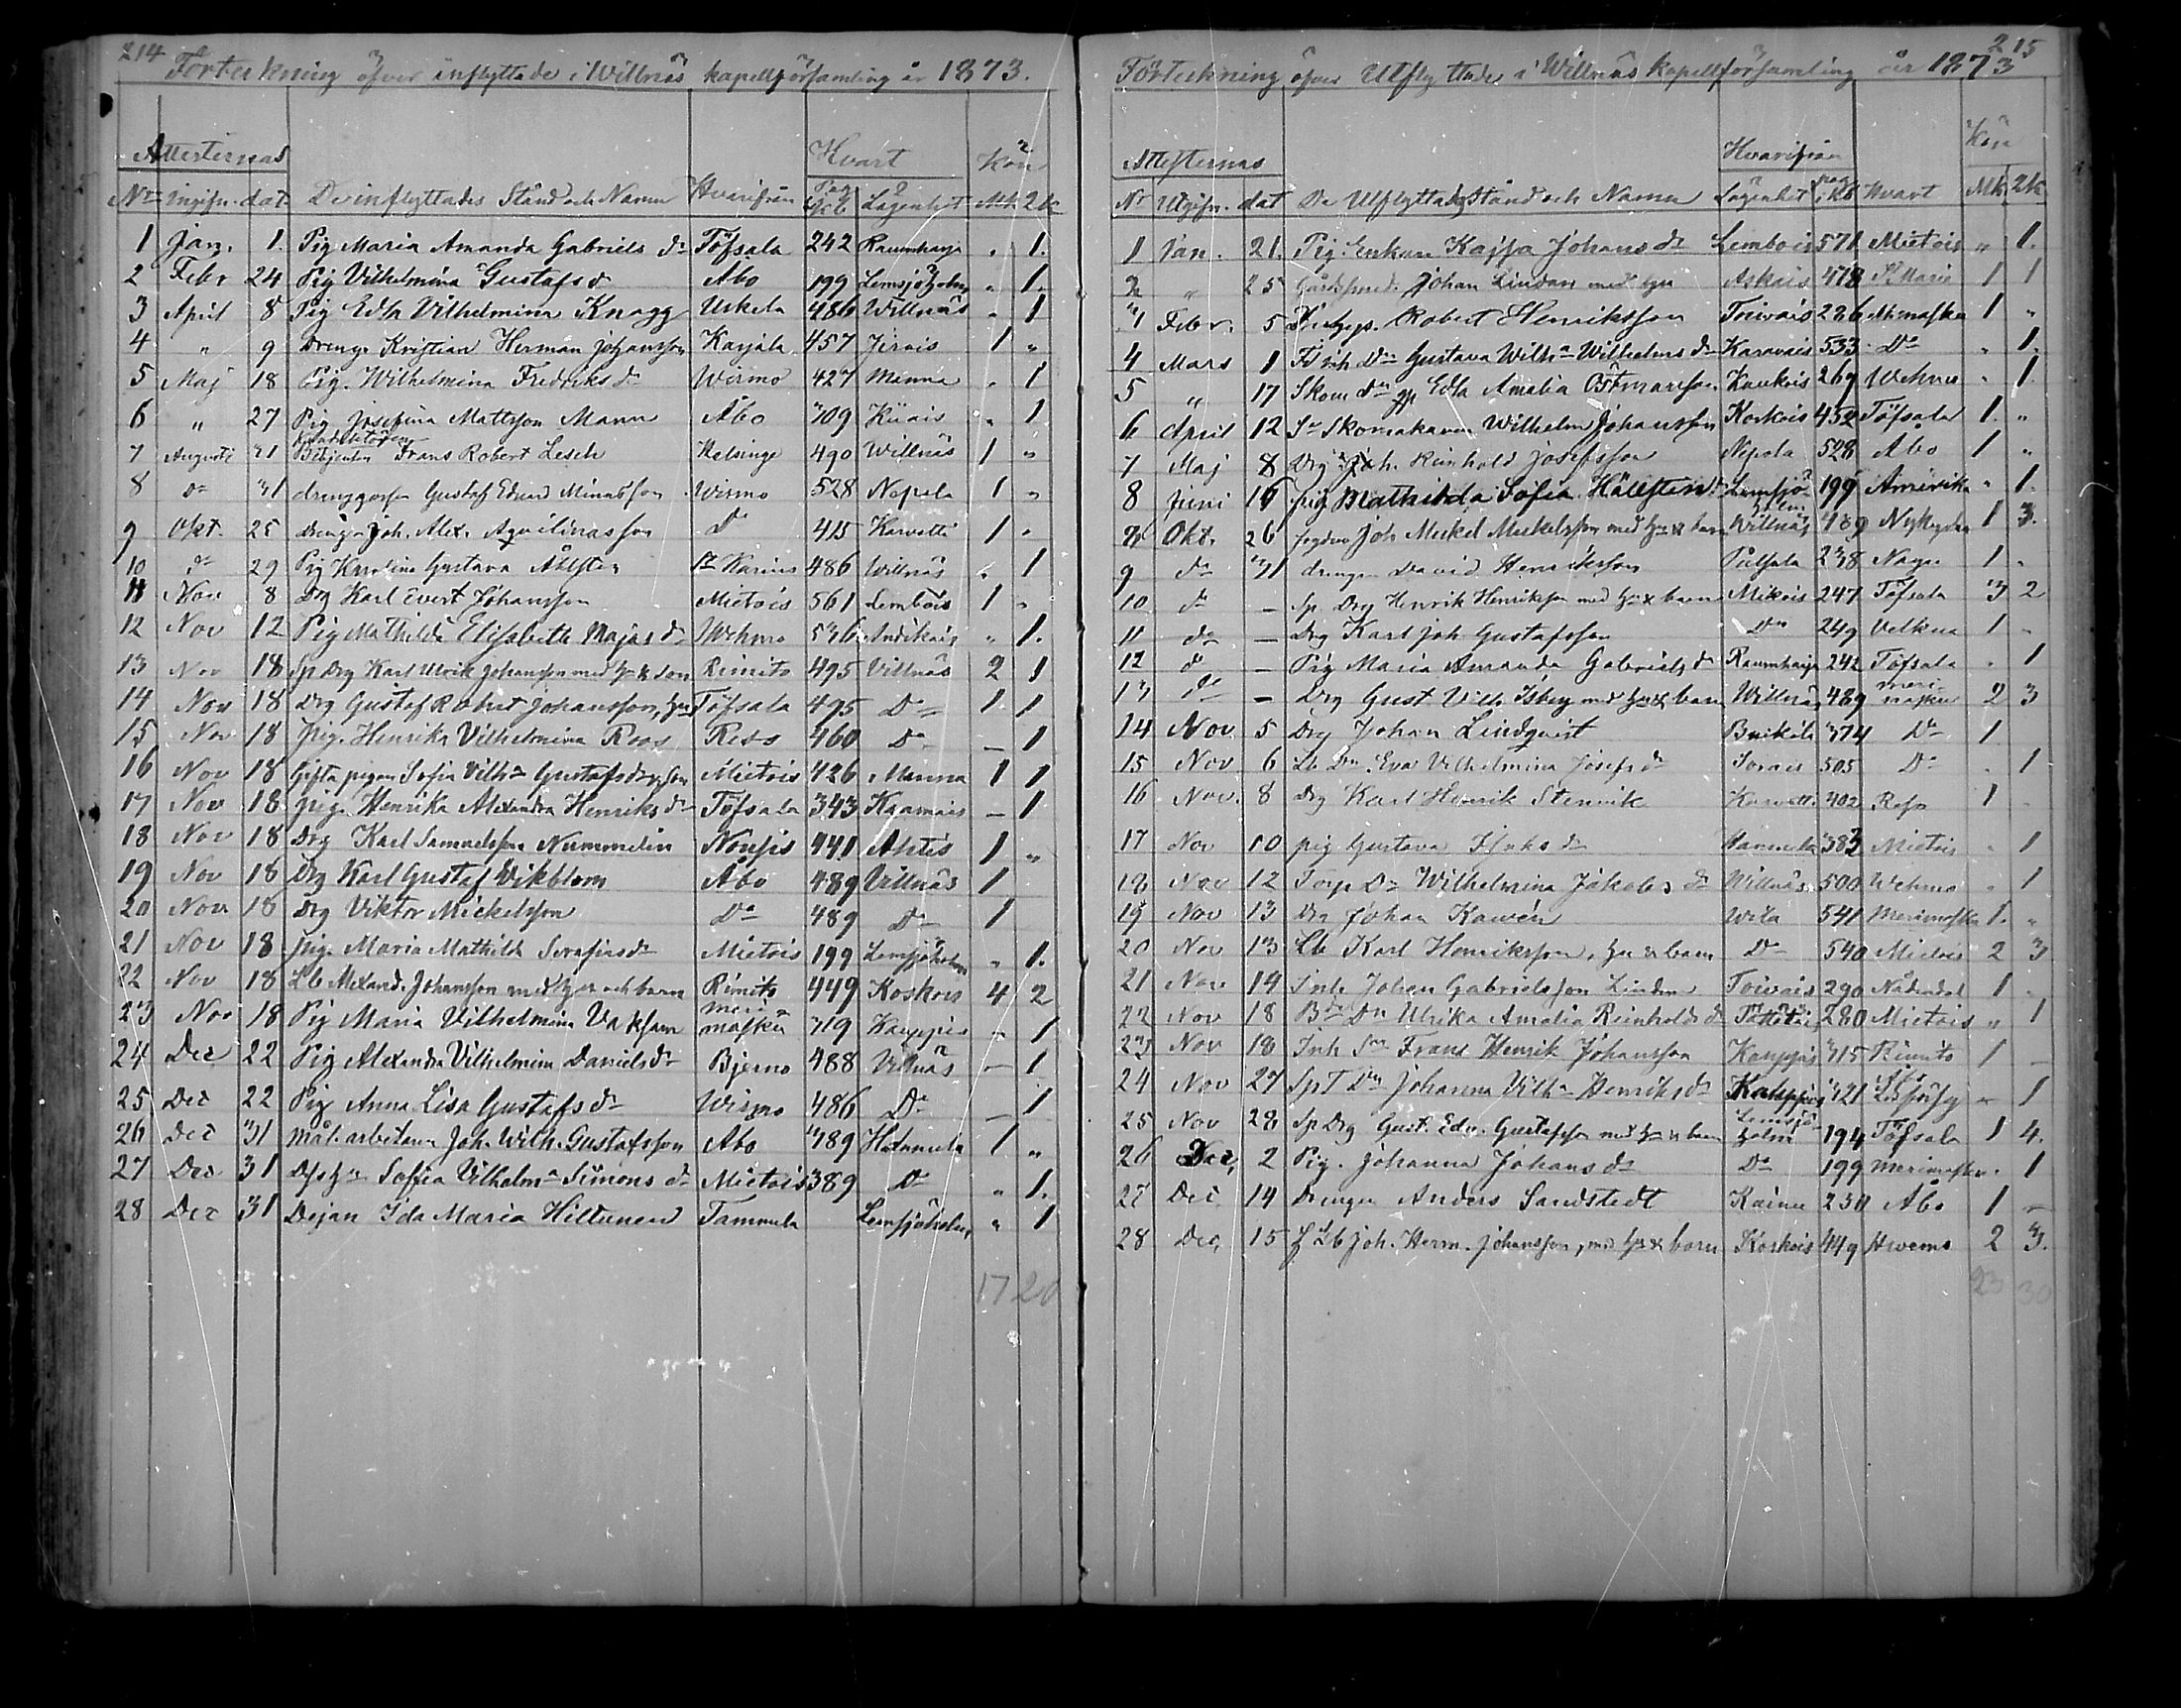 214 Förteckning öfver inflyttade i Willnäs kapellförsamling år 1873.
Attesternas Hvart Kön
No Ingifn. dat. De inflyttades Stånd och Namn Hvarifrån Pag Lägenhet Mk 2k
1 Jan. 1. Pig Maria Amanda Gabriels dr Töfsala 242 Raumharja " 1.
2 Febr 24 Pig Vilhelmina Gustafs d Åbo 199 Lemsjöholm " 1.
3 April 8 Pig Edla Vilhelmina Knagg Uskela 486 Willnäs " 1
4 " 9 Drengn Kristian Herman Johansson Karjala 457 Jirois 1 "
5 Maj 18 Pig. Wilhelmina Fredriks dr Wirmo 427 Manna " 1
6 " 27 Pig Josefina Mattsson Mann Åbo 309 Kuais " 1
7 Augusti 31 Konduktören Betjenten Frans Robert Lesch Helsinge 490 Willnäs 1 "
8 do 31 drenggossen Gustaf Edvard Minasson Wirmo 528 Nepola 1 "
9 Okt. 25 Drengn Joh. Alex. Aqvilinasson Do 415 Karvatti 1 "
10 do 29 Pig Karolina Gustava Åhlsten St Karins 486 Willnäs " 1
11 Nov 8 Drg Karl Evert Johansson Mietois 561 Lembois 1 "
12 Nov 12 Pig Mathilda Elisabeth Majas dr Wehmo 536 Andikais " 1.
13 Nov 18 Sp Drg Karl Ulrik Johansson med hu & son Rimito 495 Villnäs 2 1
14 Nov 18 Drg Gustaf Robert Johansson, hu Töfsala 495 Do 1 1
15 Nov 18 Pig. Henrika Vilhelmina Roos Reso 460 Do — 1
16 Nov 18 Gifta pigan Sofia Vilha Gustafsdr, son Mietois 426 Manna 1 1
17 Nov 18 Pig. Henrika Alexandra Henriks dr Töfsala 343 Kaamais — 1
18 Nov 18 Drg Karl Samuelsson Nummelin Nousis 441 Ahtis 1 "
19 Nov 18 Drg Karl Gustaf Wikblom Åbo 489 Villnäs 1
20 Nov 18 Drg Viktor Mickelsson Do 489 Do 1
21 Nov 18 Pig. Maria Mathilda Serafias dr Mietois 199 Lemsjöholm " 1.
22 Nov 18 Lb Alexand. Johansson med hu och barn Rimito 449 Koskois 4 2
23 Nov 18 Pig Maria Vilhelmina Vaksam Merimasku 319 Kauppis — 1
24 Dec 22 Pig Alexandra Vilhelmina Daniels dr Bjerno 488 Villnäs — 1
25 Dec 22 Pig Anna Lisa Gustafs dr Wirmo 486 Do — 1
26 Dec 31 Mål. arbetaren Joh. Wilh. Gustafsson Åbo 389 Hatanmula 1 "
27 Dec 31 Dess hu Sofia Vilhelma Simons dr Mietois 389 Do " 1.
28 Dec 31 Dejan Ida Maria Hiltunen Tammela Lemsjöholm, " 1
17 20
215
Förteckning öfver Utflyttade i Willnäs kapellförsamling år 1873
Attesternas Hvarifrån Kön
No Utgifn. dat De Utflyttades Stånd och Namn Lägenhet pag i kb Hvart Mk 2k
1 Jan. 21. Pig. Enkan Kajsa Johans dr Lembois 571 Mietois " 1.
2 " 25 Gårdssmed. Johan Lindan med hu Askais 478 St Marie 1 1
3 Febr. 5 Robert Henriksson Toivais 286 Mmasku 1 "
4 Mars 1 Gustava Wilha Wilhelms dr Karavais 533 Do " 1.
5 " 17 Skom dn Edla Amalia Östmansson Kaukois 267 Wehmo " 1.
6 April 12 Sn Skomakaren Wilhelm Johansson Koskois 452 Töfsala 1. "
7 Maj 8 Drg Joh. Reinhold Josefsson Nepola 528 Åbo 1 "
8 Juni 16 pig Mathilda Sofia Hällsten Lemsjöholm 199 Amerika " 1.
8 Okt. 26 Joh Mickel Mickelsson med hu & barn Willnäs 489 Nykyrka 1 3.
9 do 31 drengen David Henriksson Pulsala 238 Nagu 1 "
10 do — Sp Drg Henrik Henriksson med hu & barn Mikois 247 Töfsala 3 2
11 do — Drg Karl Joh Gustafsson Do 249 Velkua 1 "
12 do — Pig Maria Amanda Gabriels d Raumharja 242 Töfsala " 1
13 do — Drg Gust. Vilh. Isberg med hu & barn Willnäs 489 Merimasku 2 3
14 Nov 5 Drg Johan Lindqvist 374 Do 1
15 Nov 6 Lb Dn. Eva Vilhelmina Josefs dr Sorais 505 Do " 1
16 Nov. 8 Drg Karl Henrik Stenvik Karvatti 402 Reso 1 "
17 Nov 10 pig Gustava Isaks dr Hanmula 383 Mietois " 1
18 Nov 12 Torp Dr Wilhelmina Jakobs dr Willnäs 500 Wehmo " 1
19 Nov 13 Drg Johan Kawén Wila 541 Merimasku 1. "
20 Nov 13 Lb Karl Henriksson, hu & barn Do 540 Mietois 2 3
21 Nov 14 Inh Johan Gabrielsson Linden Toivais 290 Nådendal 1 "
22 Nov 18 Bde Dn Ulrika Amalia Reinholds d 280 Mietois " 1
23 Nov 18 Inh Sn Frans Henrik Johansson Kauppis 315 Rimito 1 —
24 Nov 27 Sp T Dn Johanna Vilha Henriks dr Kauppis 321 — 1
25 Nov 28 Sp Drg Gust. Edv. Gustafsson med hu & barn Lemsjöholm 194 Töfsala 1 4.
26 Dec, 2 Pig. Johanna Johans dr Do 199 Merimasku " 1
27 Dec 14 Drengen Anders Sandstedt Kainu 250 Åbo 1 —
28 Dec, 15 Lb Joh. Herm. Johansson, med hu & barn Koskois 449 Hvems 2 3.
23 30